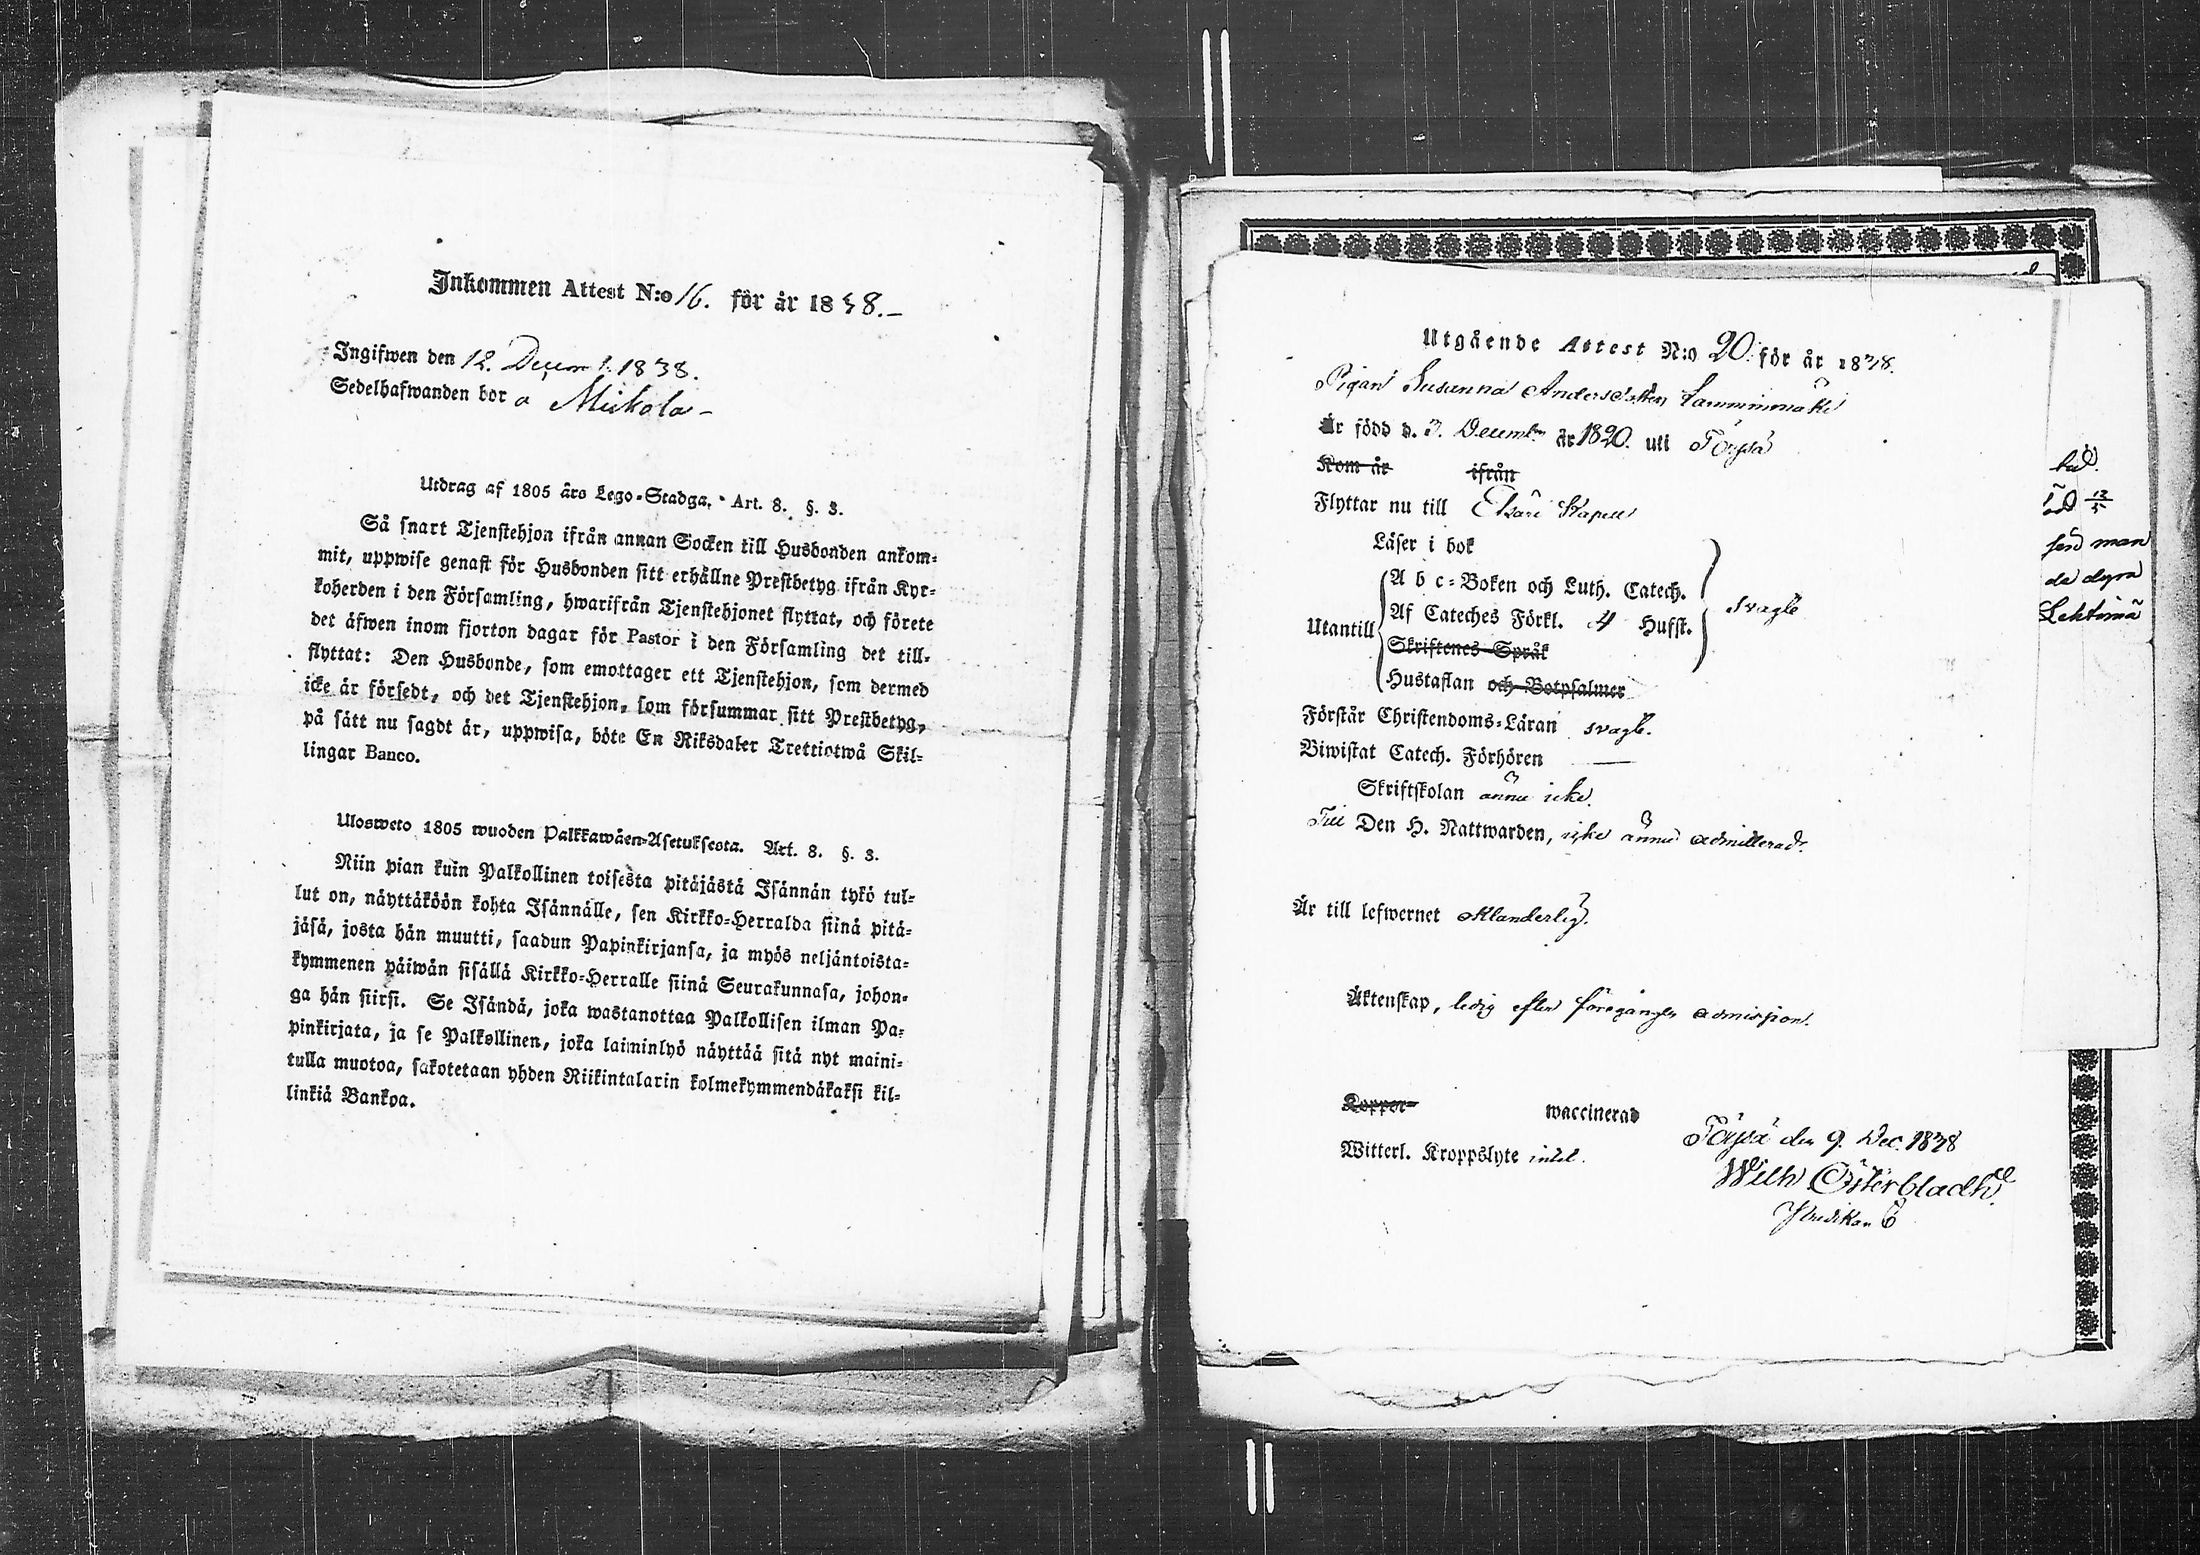 Inkommen Attest N:o 16. för år 1838.-
Ingifwen den 12. Decem. 1838.
Sedelhafwanden bor a Mickola -
Utdrag af 1805 års Lego-Stadga. Art. 8. §. 3.
Så snart Tjenstehjon ifrån annan Socken till Husbonden ankom-
mit, uppwise genast för Husbonden sitt erhållne Prestbetyg ifrån Kyr-
koherden i den Församling, hwarifrån Tjenstehjonet flyttat, och förete
det äfwen inom fjorton dagar för Pastor i den Församling det till-
flyttat: Den Husbonde, som emottager ett Tjenstehjon, som dermed
icke är försedt, och det Tjenstehjon, som försummar sitt Prestbetyg,
på sätt nu sagdt är, uppwisa, böte En Riksdaler Trettiotwå Skil-
lingar Banco.
Ulosweto 1805 wuoden Palkkawäen-Asetuksesta. Art. 8. §. 3.
Niin pian kuin Palkollinen toisesta pitäjästä Isännän tykö tul-
lut on, näyttäköön kohta Isännälle, sen Kirkko-Herralda siinä pitä-
jäsä, josta hän muutti, saadun Papinkirjansa, ja myös neljäntoista-
kymmenen päiwän sisällä Kirkko-Herralle siinä Seurakunnasa, johon-
ga hän siirsi. Se Isändä, joka wastanottaa Palkollisen ilman Pa-
pinkirjata, ja se Palkollinen, joka laiminlyö näyttää sitä nyt maini-
tulla muotoa, sakotetaan yhden Riikintalarin kolmekymmendäkaksi kil-
linkiä Bankoa.
Utgående Attest N:o 20. för år 1838.
Pigan Susanna Andersdotter Lamminmäki
Är född d. 3. Decembr år 1820. uti Töysä
Kom år ifrån
Flyttar nu till Etsäri Kapell
Läser i bok
A b c-Boken och Luth. Catech.
Utantill Af Cateches Förkl. 4 Hufst. svagt
Skriftenes Språk
Hustaflan och Botpsalmer
Förstår Christendoms-Läran svagt.
Biwistat Catech. Förhören —
Skriftskolan ännu icke.
Till Den H. Nattwarden, icke ännu admitterad.
Är till lefwernet oklanderlig.
Äktenskap, ledig efter föregången admission.
Koppor- waccinerad
Witterl. Kroppslyte intet.
Töysä den 9. Dec. 1838
Wilh Österbladh
Predikan
man
da dyra